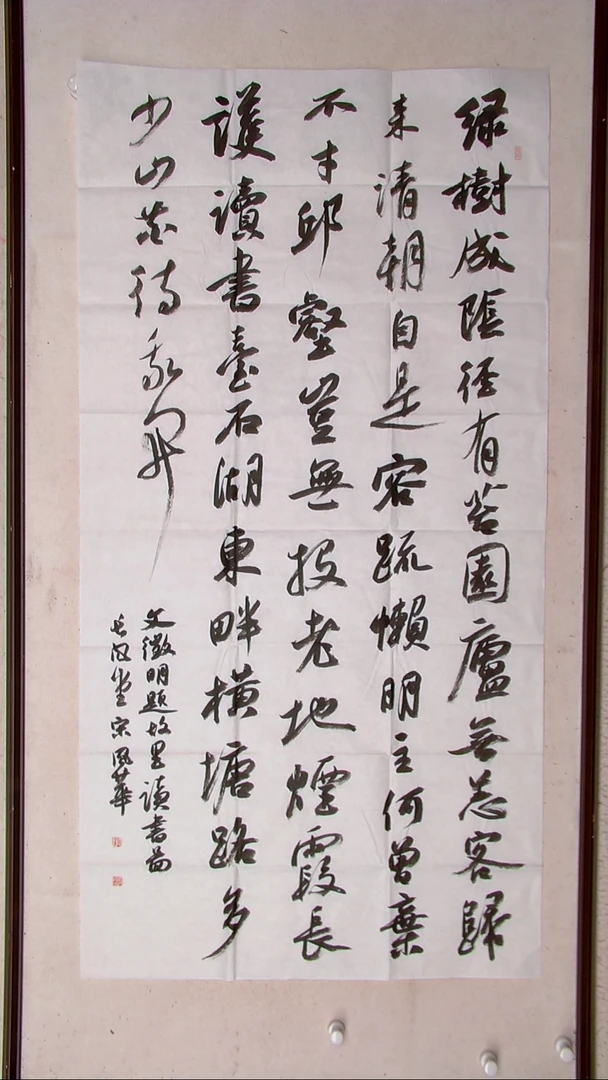 緑樹成陰徑有苔園廬無恙客歸
来清朝自是容疏懶明主何曾棄
不才邱壑豈無投老地煙霞長
護讀書臺石湖東畔橫塘路多
少山花待我開
文徵明題故里讀書圖
堂宋風華